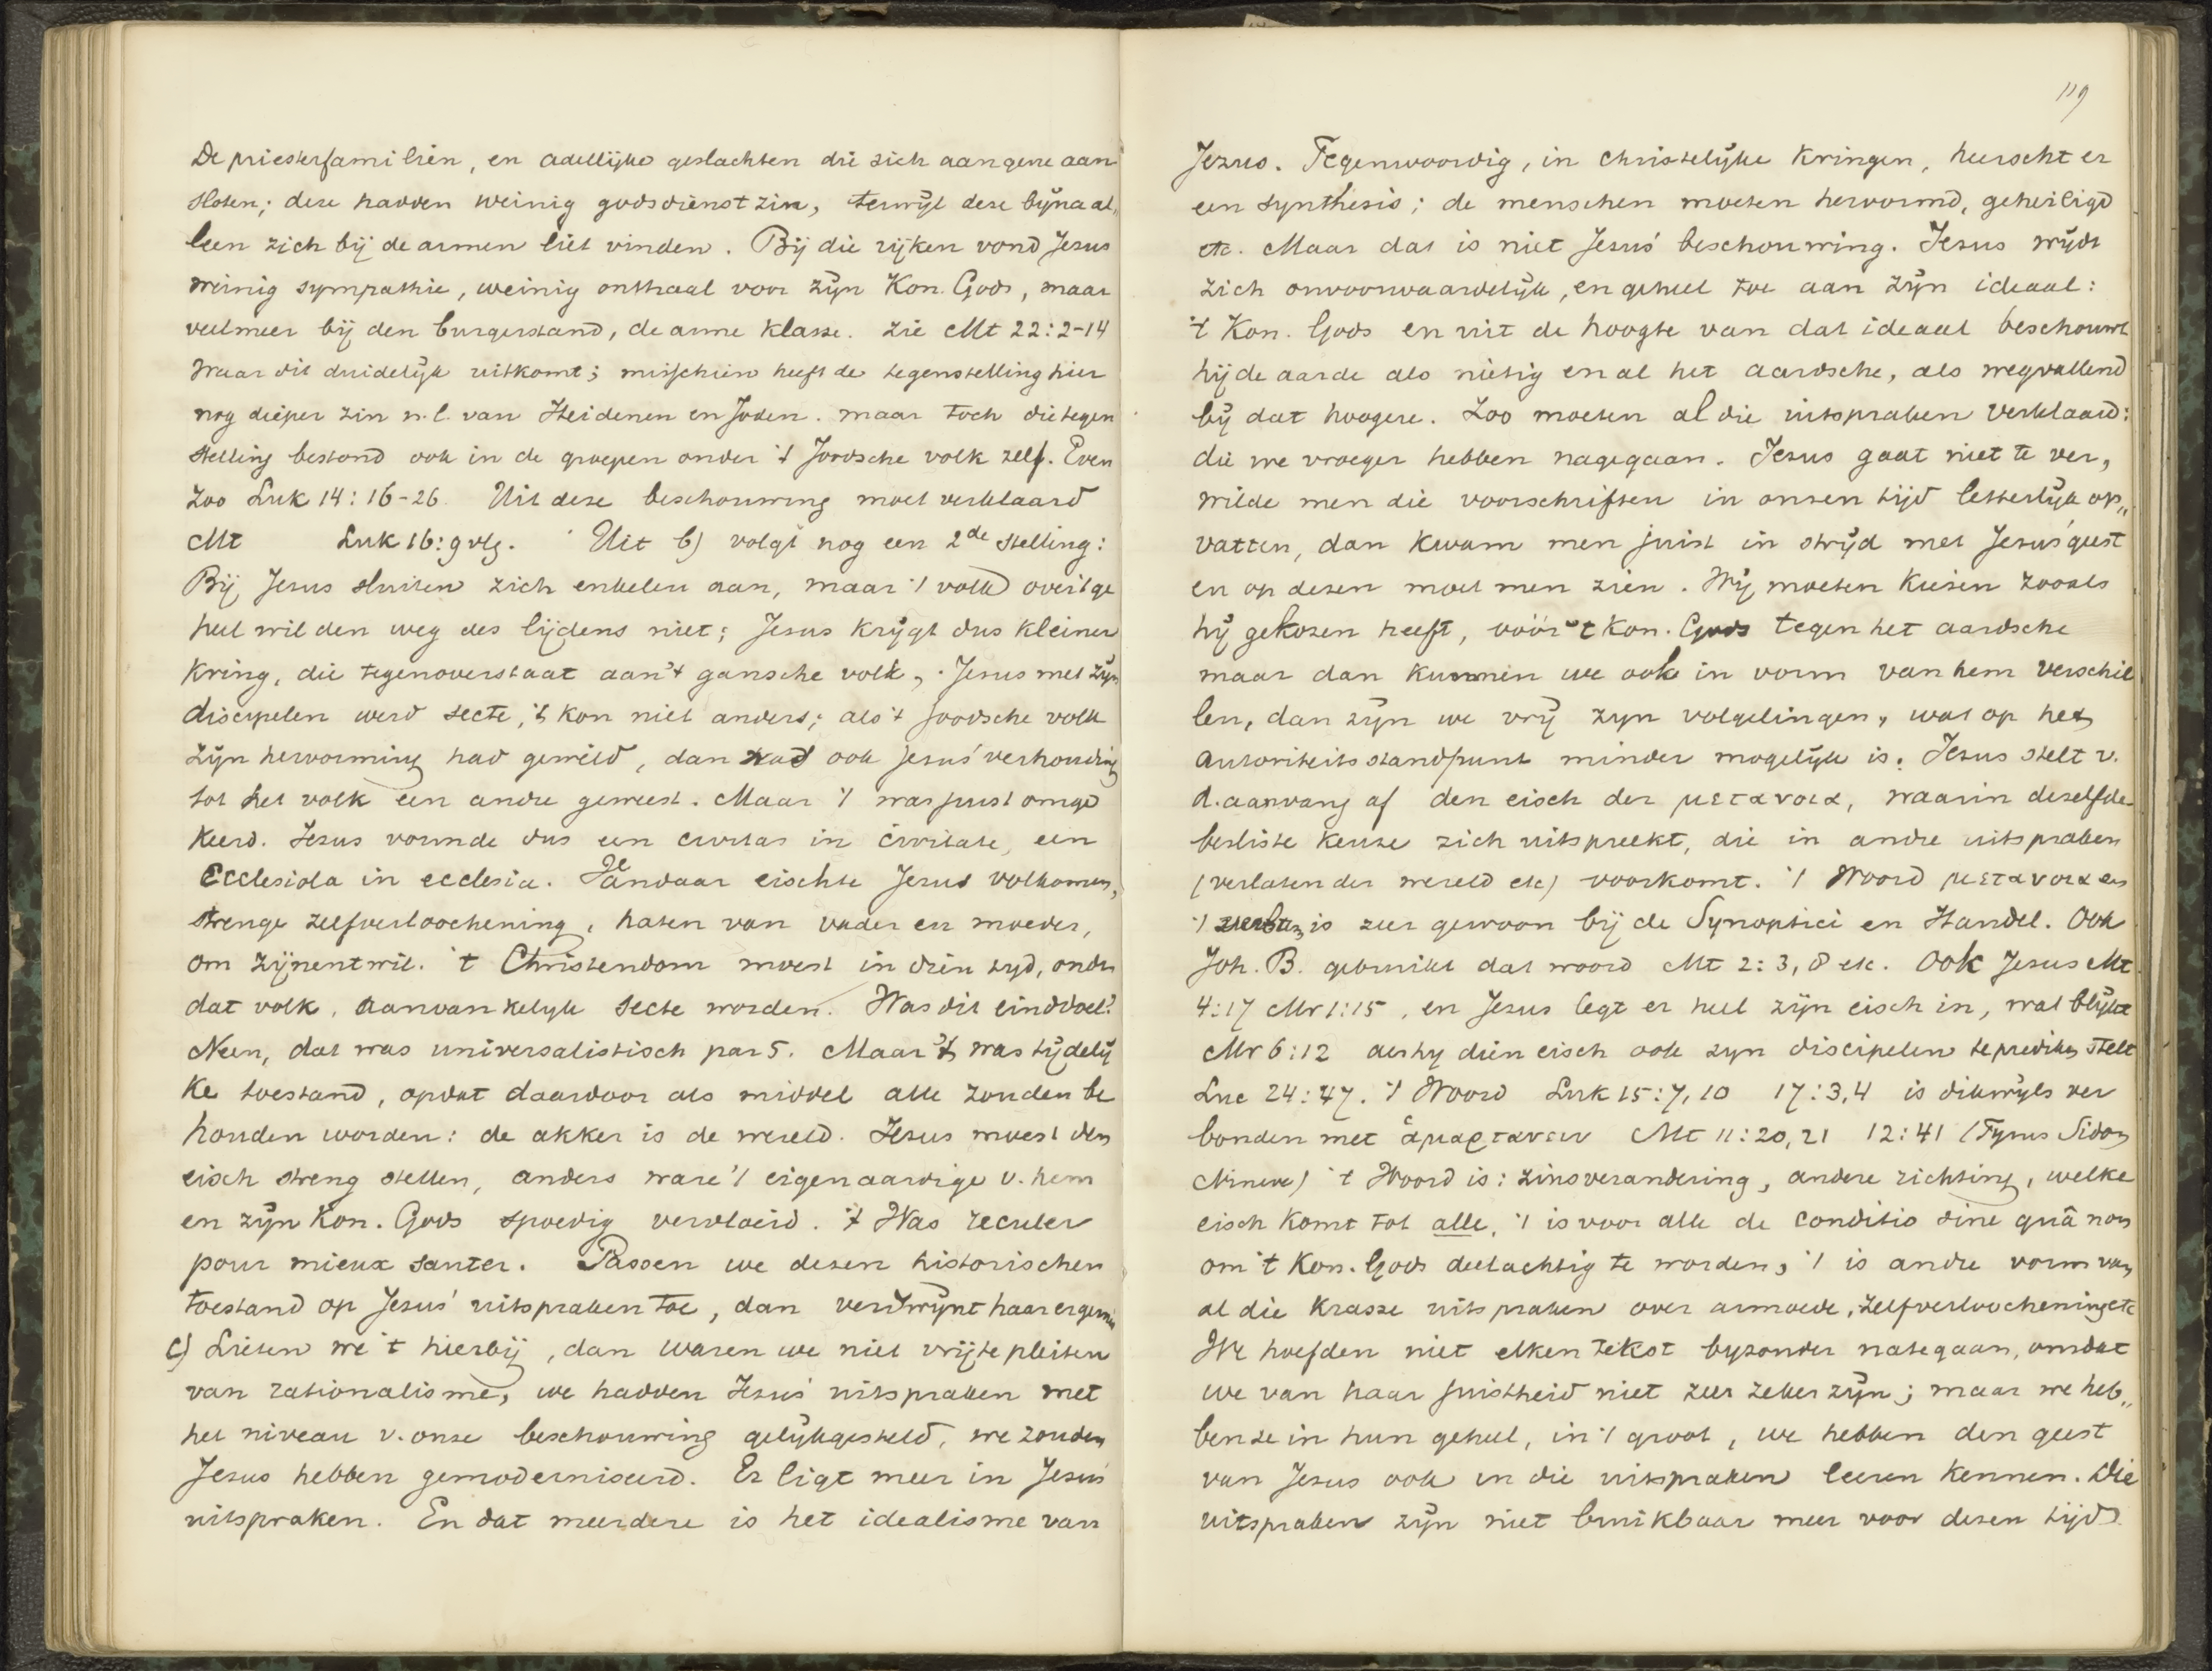 De priesterfamiliën, en adellijke geslachten die zich aan gene aan
sloten; deze hadden weinig godsdienstzin, terwijl deze bijna al„
leen zich bij de armen liet vinden. Bij die rijken vond Jezus
weinig sympathie, weinig onthaal voor zijn Kon. Gods, maar
veelmeer bij den burgerstand, de arme klasse. Zie Mt 22:2-14
Waar dit duidelijk uitkomt; misschien heeft de tegenstelling hier
nog dieper zin n.l. van Heidenen en Joden. maar toch die tegen
stelling bestond ook in de groepen onder 't Joodsche volk zelf. Even
zoo Luk 14:16-26. Uit deze beschouwing moet verklaard
Mt Luk 16:9 vlg. Uit b) volgt nog een 2de stelling:
Bij Jezus sluiten zich enkelen aan, maar 't volk over 't ge
heel wil den weg des lijdens niet; Jezus krijgt dus kleiner
kring, die tegenoverstaat aan 't gansche volk, Jezus met zijn
discipelen werd secte, 't kon niet anders; als 't Joodsche volk
zijn hervorming had gewild, dan had ook Jezus' verhouding
tot het volk een andre geweest. Maar 't was juist omge
keerd. Jezus vormde dus een civitas in civitate, een
Ecclesiola in ecclesia. Vandaar eischte Jezus volkomen,
strenge zelfverloochening, haten van vader en moeder,
om zijnentwil. 't Christendom moest in dien tyd, onder
dat volk, aanvankelyk secte worden. Was dit einddoel?
Neen, dat was universalistisch par 5. Maar 't was tijdelij
ke toestand, opdat daardoor als middel alle zouden be
houden worden: de akker is de wereld. Jezus moest den
eisch streng stellen, anders ware 't eigenaardige v. hem
en zijn Kon. Gods spoedig vervloeid. 't Was reculer
pour mieux sauter. Passen we dezen historischen
toestand op Jezus' uitspraken toe, dan verdwijnt haar ergernis
c) Lieten we 't hierbij, dan waren we niet vrij te pleiten
van rationalisme, we hadden Jezus' uitspraken met
het niveau v. onze beschouwing gelijkgesteld, we zouden
Jezus hebben gemoderniseerd. Er ligt meer in Jezus'
uitspraken. En dat meerdere is het idealisme van
119
Jezus. Tegenwoordig, in christelijke kringen, heerscht er
een synthesis; de menschen moeten hervormd, geheiligd
etc. Maar dat is niet Jezus' beschouwing. Jezus wijdt
zich onvoorwaardelijk, en geheel toe aan zijn ideaal:
't Kon. Gods en uit de hoogte van dat ideaal beschouwt
hij de aarde als nietig en al het aardsche, als wegvallend
bij dat hoogere. Zoo moeten al die uitspraken verklaard:
die we vroeger hebben nagegaan. Jezus gaat niet te ver,
wilde men die voorschriften in onzen tijd letterlijk op„
vatten, dan kwam men juist in strijd met Jezus' geest
en op dezen moet men zien. Wij moeten kiezen zooals
hij gekozen heeft, vóór 't Kon. Gods tegen het aardsche
maar dan kunnen we ook in vorm van hem verschil
len, dan zijn we vrij zyn volgelingen, wat op het
autoriteitsstandpunt minder mogelijk is. Jezus stelt v.
d. aanvang af den eisch der μετανοια, waarin dezelfde
besliste keuze zich uitspreekt, die in andre uitspraken
(verlaten der wereld etc) voorkomt. 't Woord μετανοια en
't is zeer gewoon bij de Synoptici en Handel. Ook
Joh. B. gebruikt dat woord Mt 2:3, 8 etc. Ook Jezus Mt
4:17 Mr 1:15, en Jezus legt er heel zijn eisch in, wat blijkt
Mr 6:12 dien eisch ook zyn discipelen te prediken stelt
Luc 24:47. 't Woord Luk 15:7, 10 17:3,4 is dikwijls ver
bonden met ἁμαρτανειν Mt 11:20, 21 12:41 (Tyrus Sidon
Nineve) 't Woord is: zinsverandering, andere richting, welke
eisch komt tot alle, 't is voor alle de conditio sine quâ non
om 't Kon. Gods deelachtig te worden, 't is andre vorm van
al die krasse uitspraken over armoede, zelfverloochening etc
We hoefden niet elken tekst byzonder nategaan, omdat
we van haar juistheid niet zeer zeker zijn; maar we heb„
ben ze in hun geheel, in 't groot, we hebben den geest
van Jezus ook in die uitspraken leeren kennen. Die
uitspraken zijn niet bruikbaar meer voor dezen tijd.